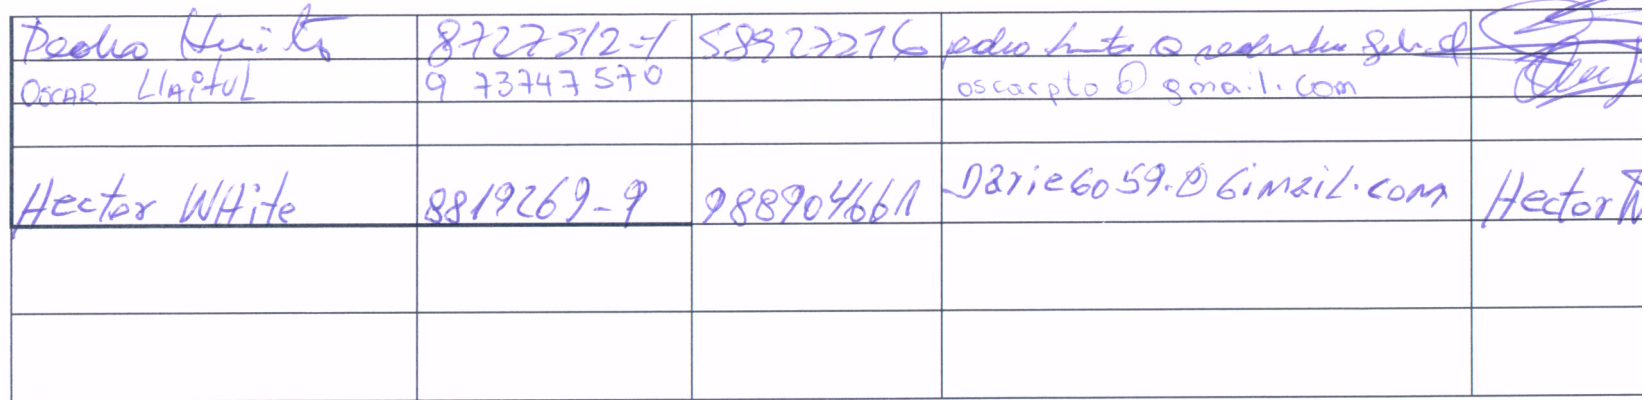 Pedro Huito 8727512-1 58927216 pedro
OSCAR LlAitUL 9 73747570 oscarpto@gmail.com
Hector WHite 8819269-9 988904661 Darie6059.@Gimail.com Hector